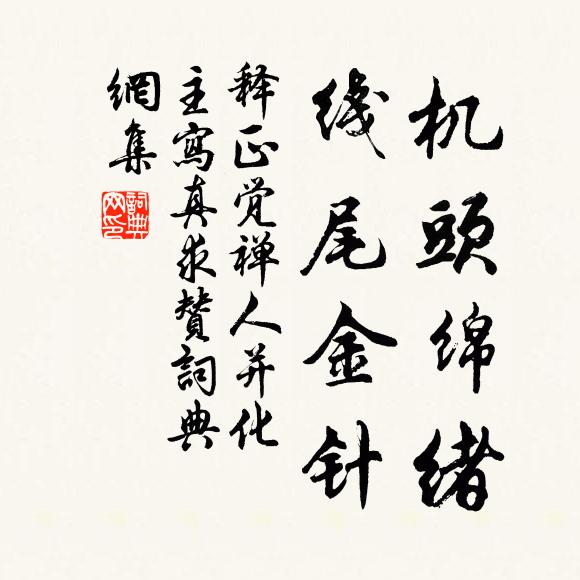 机頭绵绪
线尾金针
释正觉禅人并化
主寫真求赞詞典
網集
詞典
网印